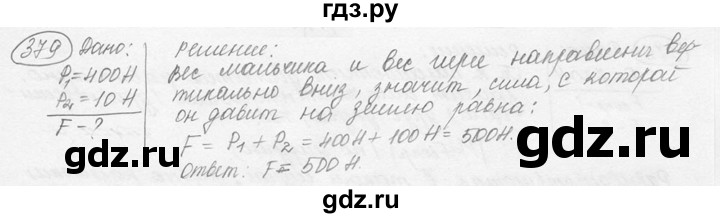 гдз.ру
379 Дано:
P₁=400H
P₂=10H
F-?
Решение:
Вес мальчика и вес гири направлены вер-
тикально вниз, значит, сила, с которой
он давит на землю равна:
F = P₁ + P₂ = 400H + 100H = 500H.
Ответ: F = 500H.
gdz.ru
gdz.ru